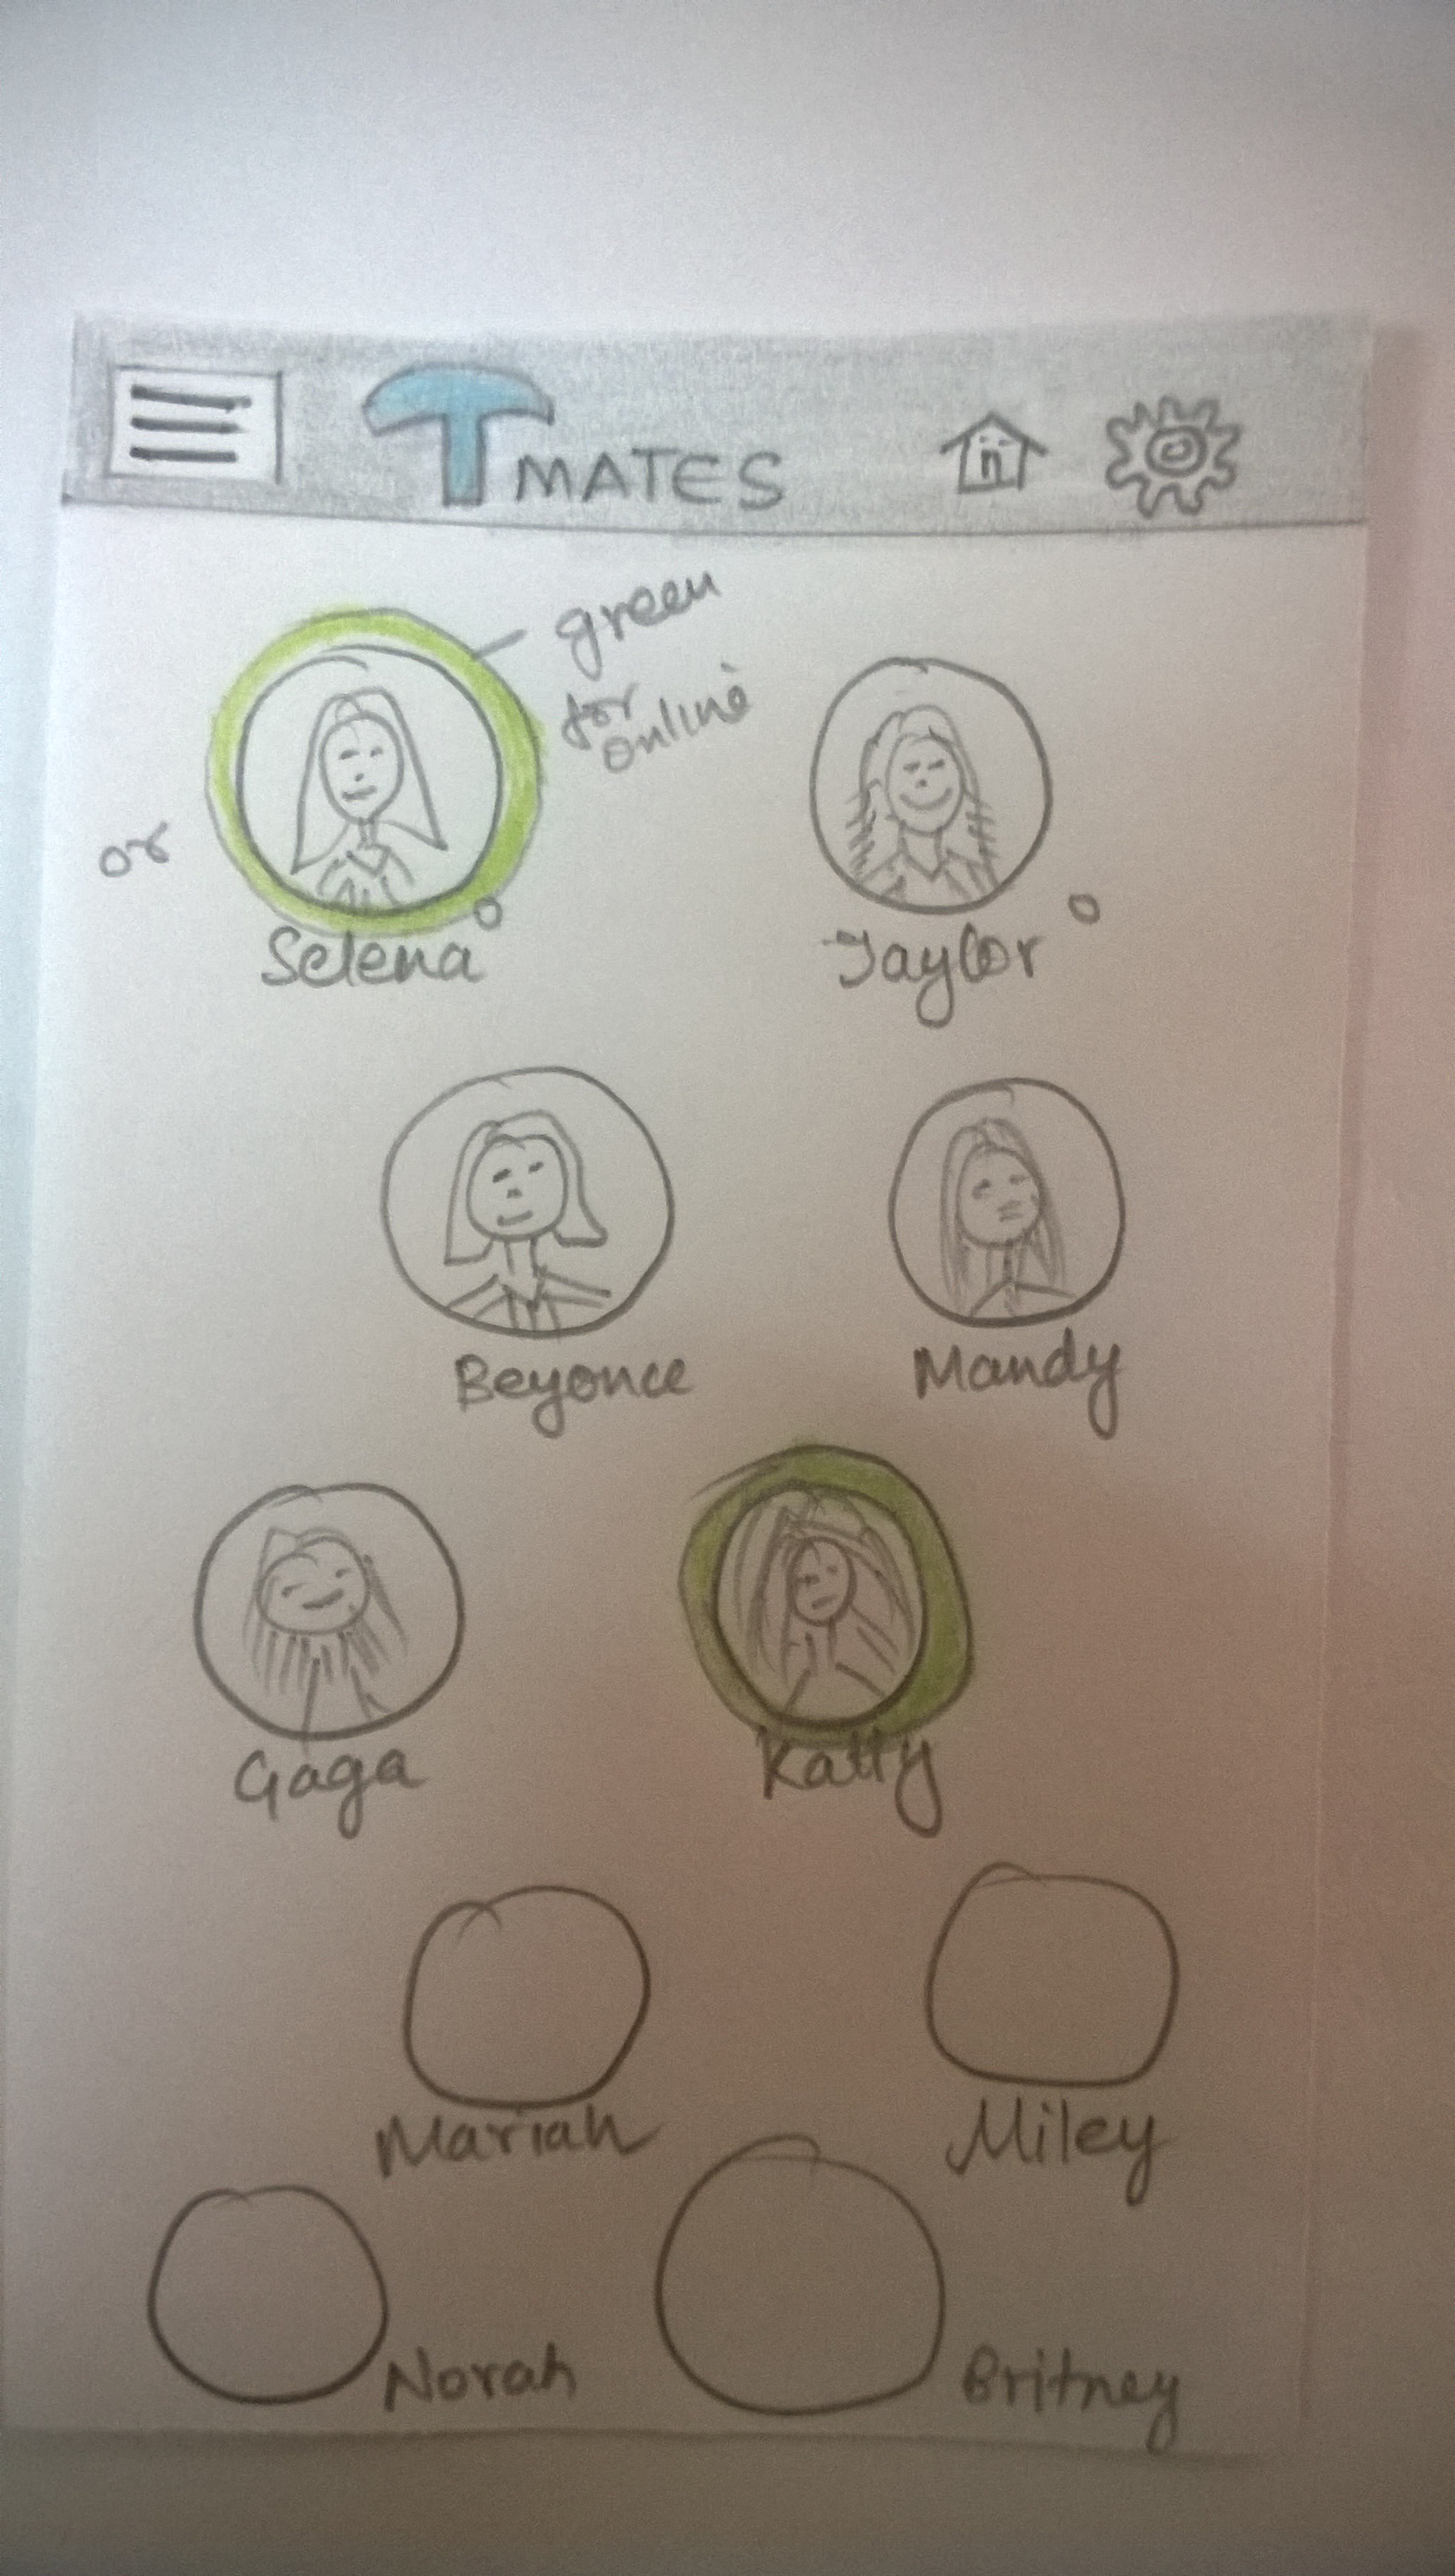 T MATES
green
for
online
or
Selena
Taylor
Beyonce
Mandy
Gaga
Katty
Mariah
Miley
Norah
Britney